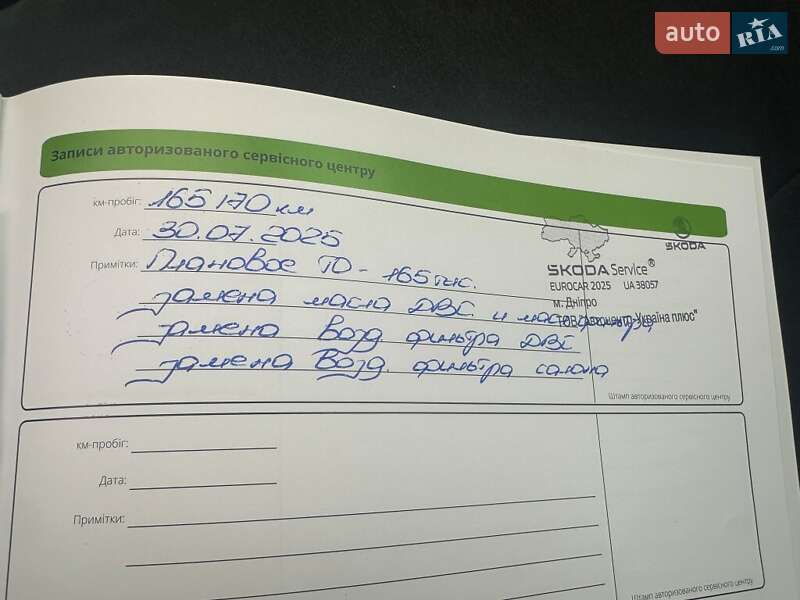 auto RIA.com
Записи авторизованого сервісного центру
км-пробіг: 165 170 км
Дата: 30.07.2025
Примітки: Плановое ТО - 165 тыс.
замена масла ДВС и масл.
замена Возд фильтра ДВС
замена Возд. фильтра салона
SKODA
SKODA Service®
EUROCAR 2025 UA 38057
м. Дніпро
ТОВ "Автоцентр-Україна плюс"
Штамп авторизованого сервісного центру
км-пробіг:
Дата:
Примітки:
Штамп авторизованого сервісного центру